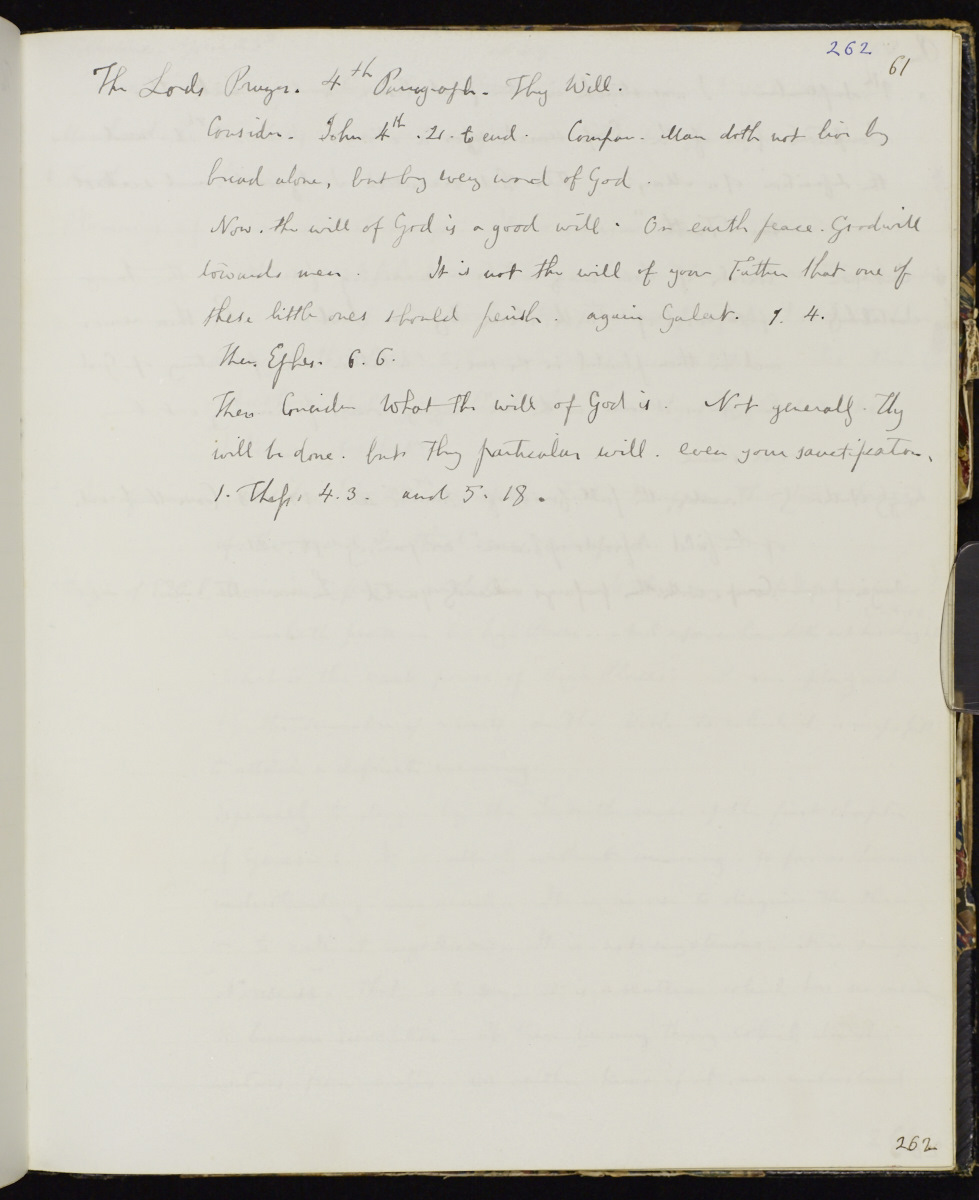 262
61
The Lords Prayer. 4th Paragraph. Thy Will.
Consider. John 4th. 21. to end. Compare. Man doth not live by
bread alone, but by every word of God.
Now. the will of God is a good will. On earth peace. Goodwill
towards men. It is not the will of your Father that one of
these little ones should perish. again Galat. 1. 4.
Then Ephes. 6. 6.
Then Consider What the will of God is. Not generally. Thy
will be done. but Thy particular will. even your sanctification.
1. Thess. 4. 3. and 5. 18.
262